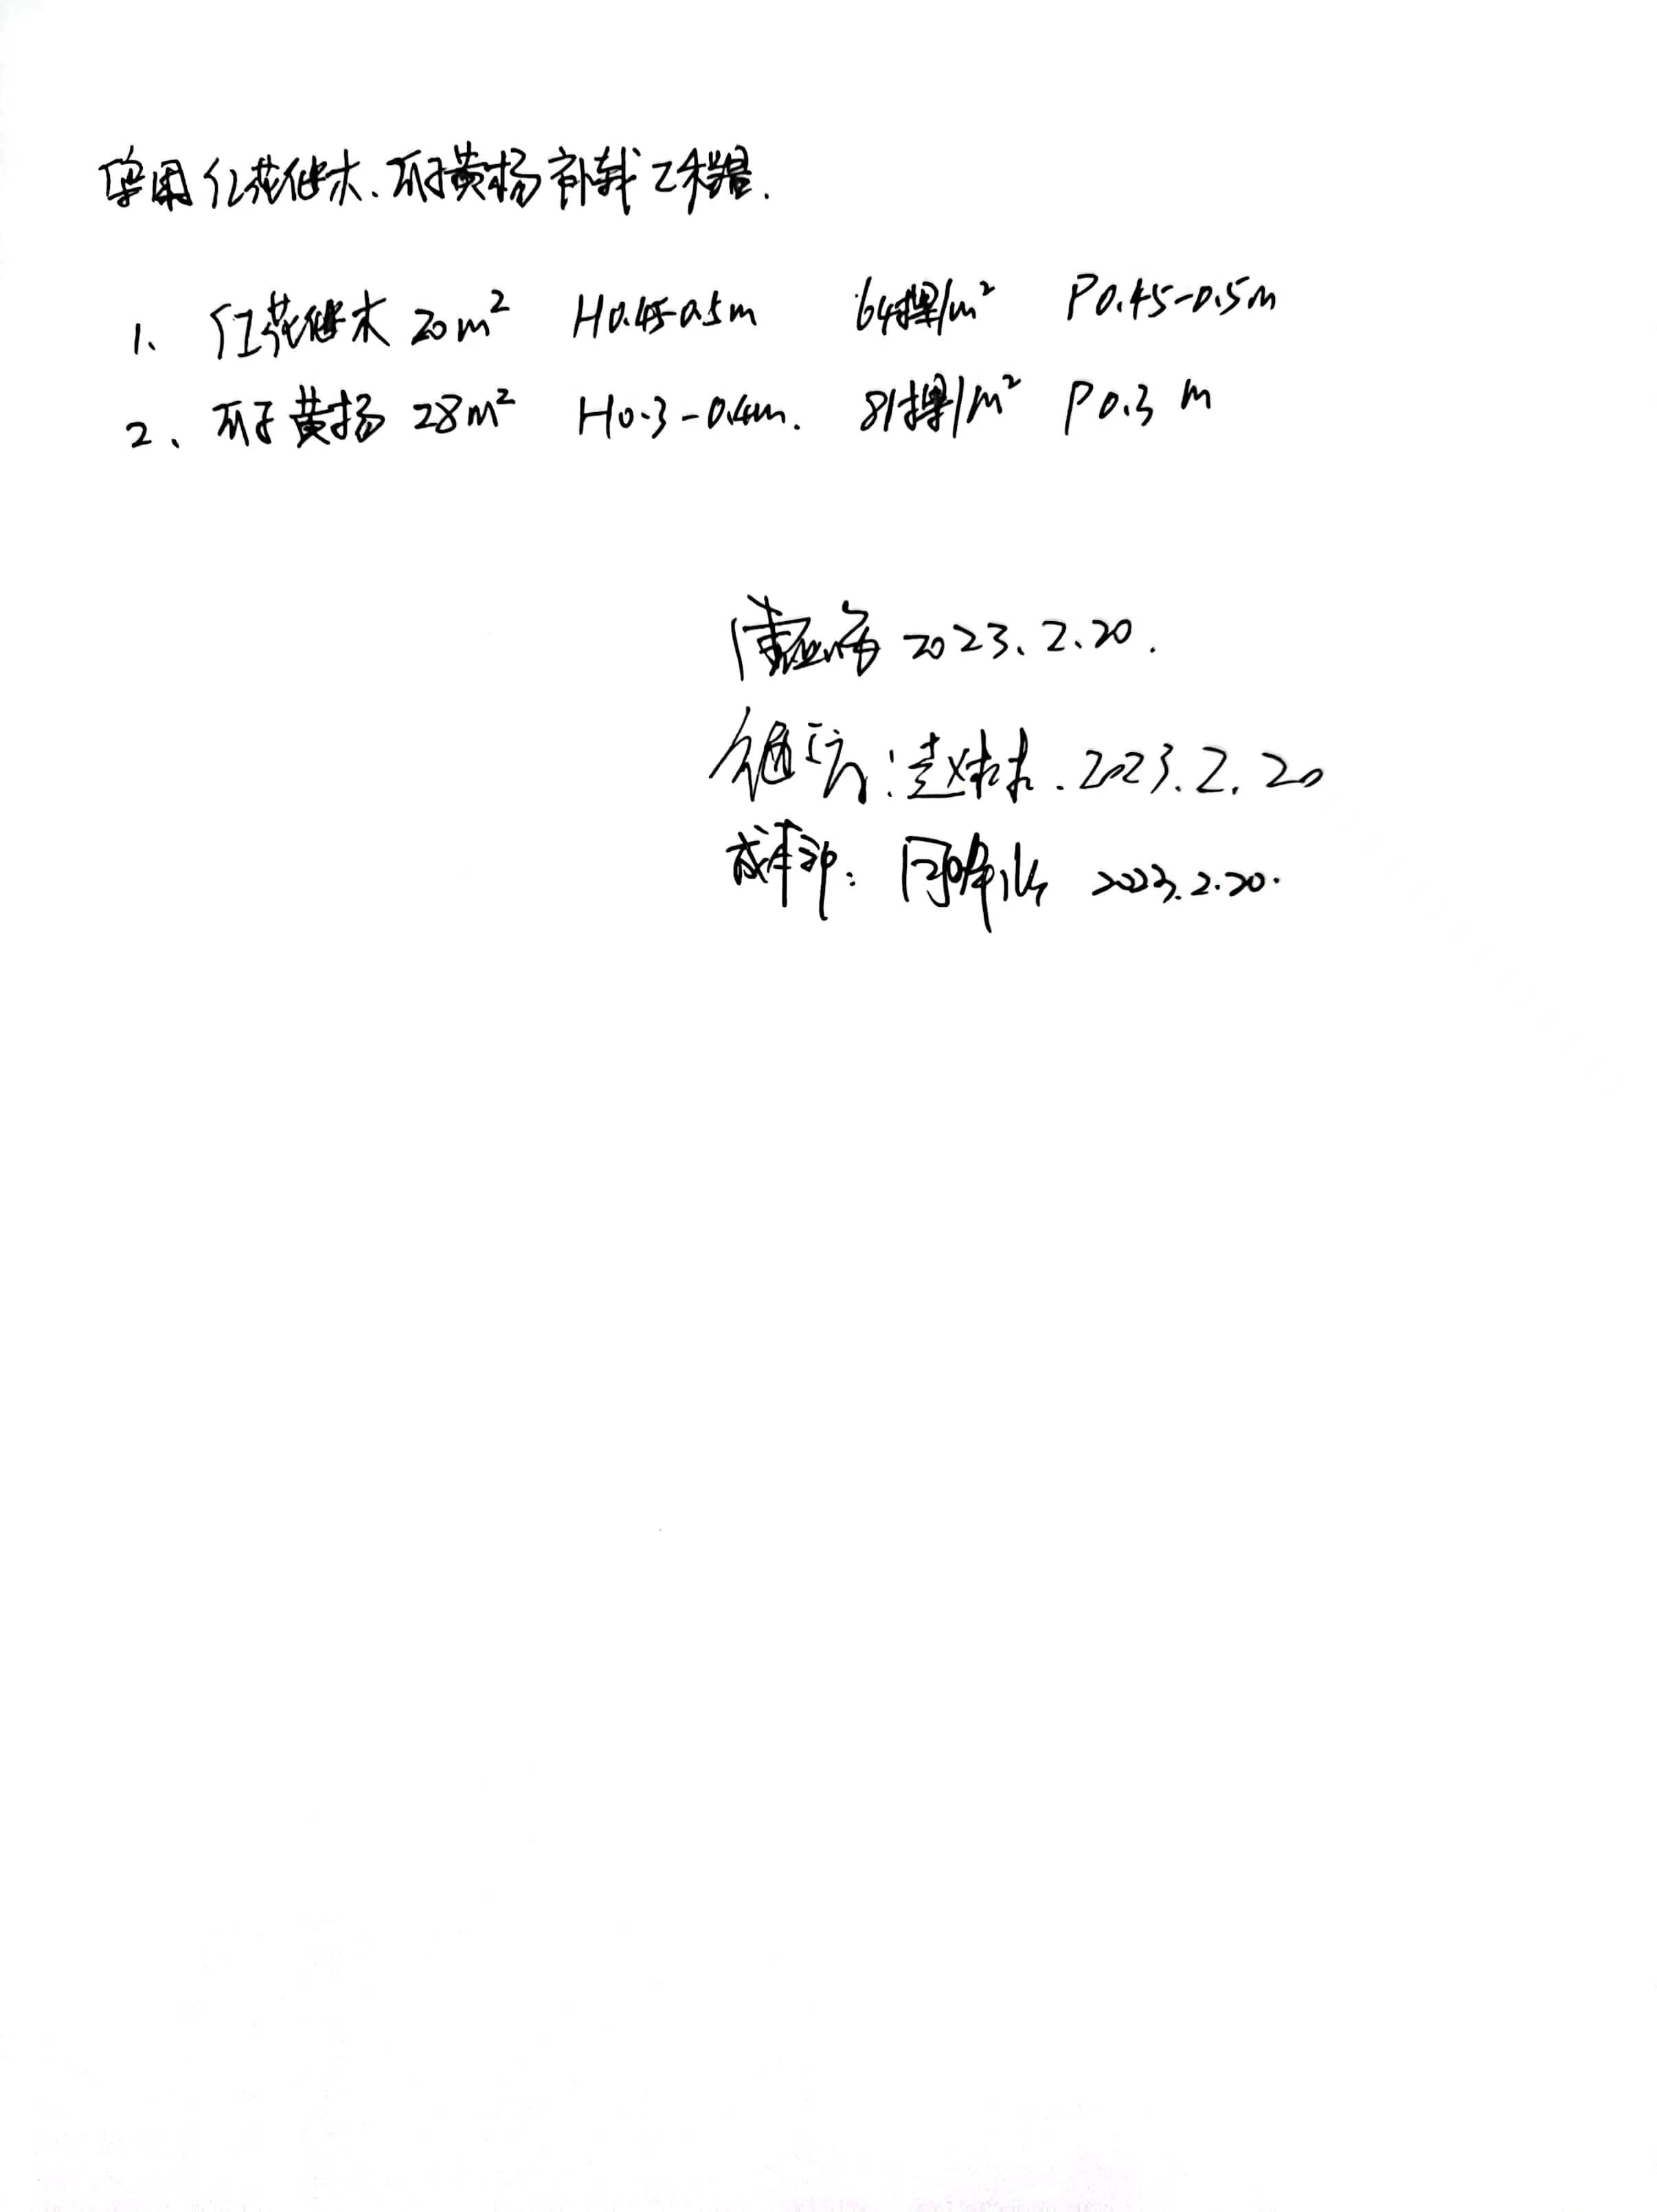 红花继木、瓜子黄杨补栽工程量.
1、红花继木 20m² H0.45-0.5m 64棵/m² P0.45-0.5m
2、瓜子黄杨 28m² H0.3-0.4m. 81棵/m² P0.3m
2023.2.20.
赵林林.2023.2.20
成本部: 2023.2.20.